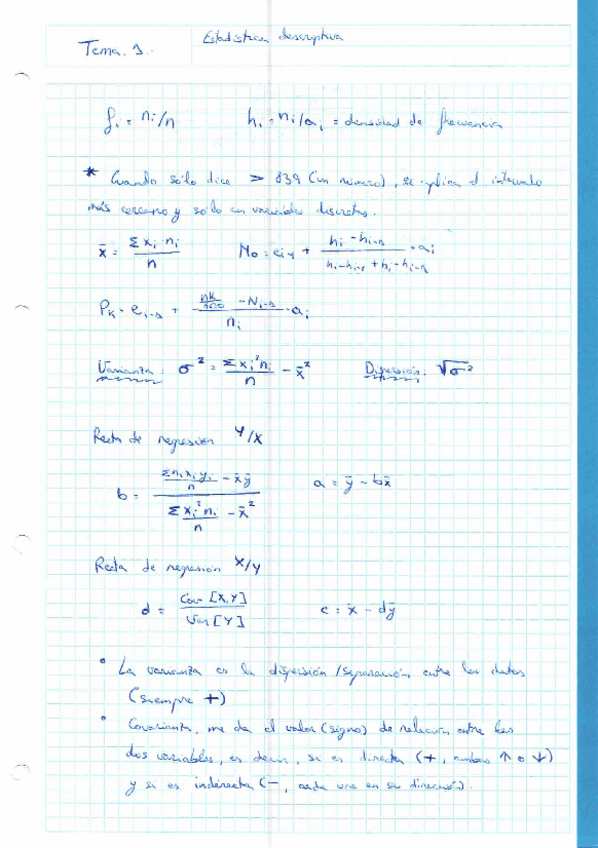 Tema. 1.
Estadística descriptiva
fi = ni/n hi = ni/ai = densidad de frecuencia
* Cuando sólo dice > 839 (un número), se aplica el intervalo
más cercano y sólo en variables discretas.
x̄ = Σ xi · ni / n Mo = ei-1 + (hi - hi-1) / (hi - hi-1 + hi - hi-1) · ai
PK = ei-1 + (nK/100 - Ni-1) / ni · ai
Varianza: σ² = Σ xi² ni / n - x̄² Dispersión: √σ²
Recta de regresión Y/X
b = (Σ ni xi yi / n - x̄ȳ) / (Σ xi² ni / n - x̄²) a = ȳ - bx̄
Recta de regresión X/Y
d = Cov [X,Y] / Var [Y] c = x̄ - dȳ
° La varianza es la dispersión / separación entre los datos
(siempre +)
° Covarianza, me da el valor (signo) de relación entre las
dos variables, es decir, si es directa (+, ambas ↑ o ↓)
y si es indirecta (-, cada una en su dirección).